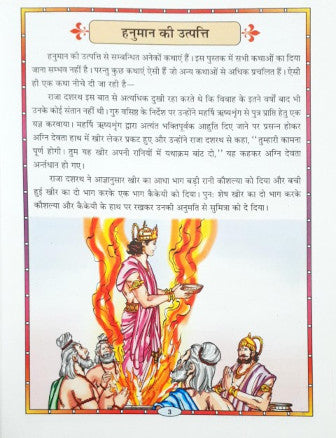 हनुमान की उत्पत्ति
हनुमान की उत्पत्ति से सम्बन्धित अनेकों कथाएं हैं। इस पुस्तक में सभी कथाओं का दिया
जाना सम्भव नहीं है। परन्तु कुछ कथाएं ऐसी हैं जो अन्य कथाओं से अधिक प्रचलित हैं। ऐसी
ही एक कथा नीचे दी जा रही है—
राजा दशरथ इस बात से अत्यधिक दुखी रहा करते थे कि विवाह के इतने वर्षों बाद भी
उनके कोई संतान नहीं थी। गुरु वसिष्ठ के निर्देश पर उन्होंने महर्षि ऋष्यश्रृंग से पुत्र प्राप्ति हेतु एक
यज्ञ करवाया। महर्षि ऋष्यश्रृंग द्वारा अत्यंत भक्तिपूर्वक आहुति दिए जाने पर प्रसन्न होकर
अग्नि देवता हाथ में खीर लेकर प्रकट हुए और उन्होंने राजा दशरथ से कहा, "तुम्हारी कामना
पूर्ण होगी। तुम यह खीर अपनी रानियों में यथाक्रम बांट दो," यह कहकर अग्नि देवता
अन्तर्धान हो गए।
राजा दशरथ ने आज्ञानुसार खीर का आधा भाग बड़ी रानी कौशल्या को दिया और बची
हुई खीर का दो भाग करके एक भाग कैकेयी को दिया। पुन: शेष खीर का दो भाग करके
कौशल्या और कैकेयी के हाथ पर रखकर उनकी अनुमति से सुमित्रा को दे दिया।
3